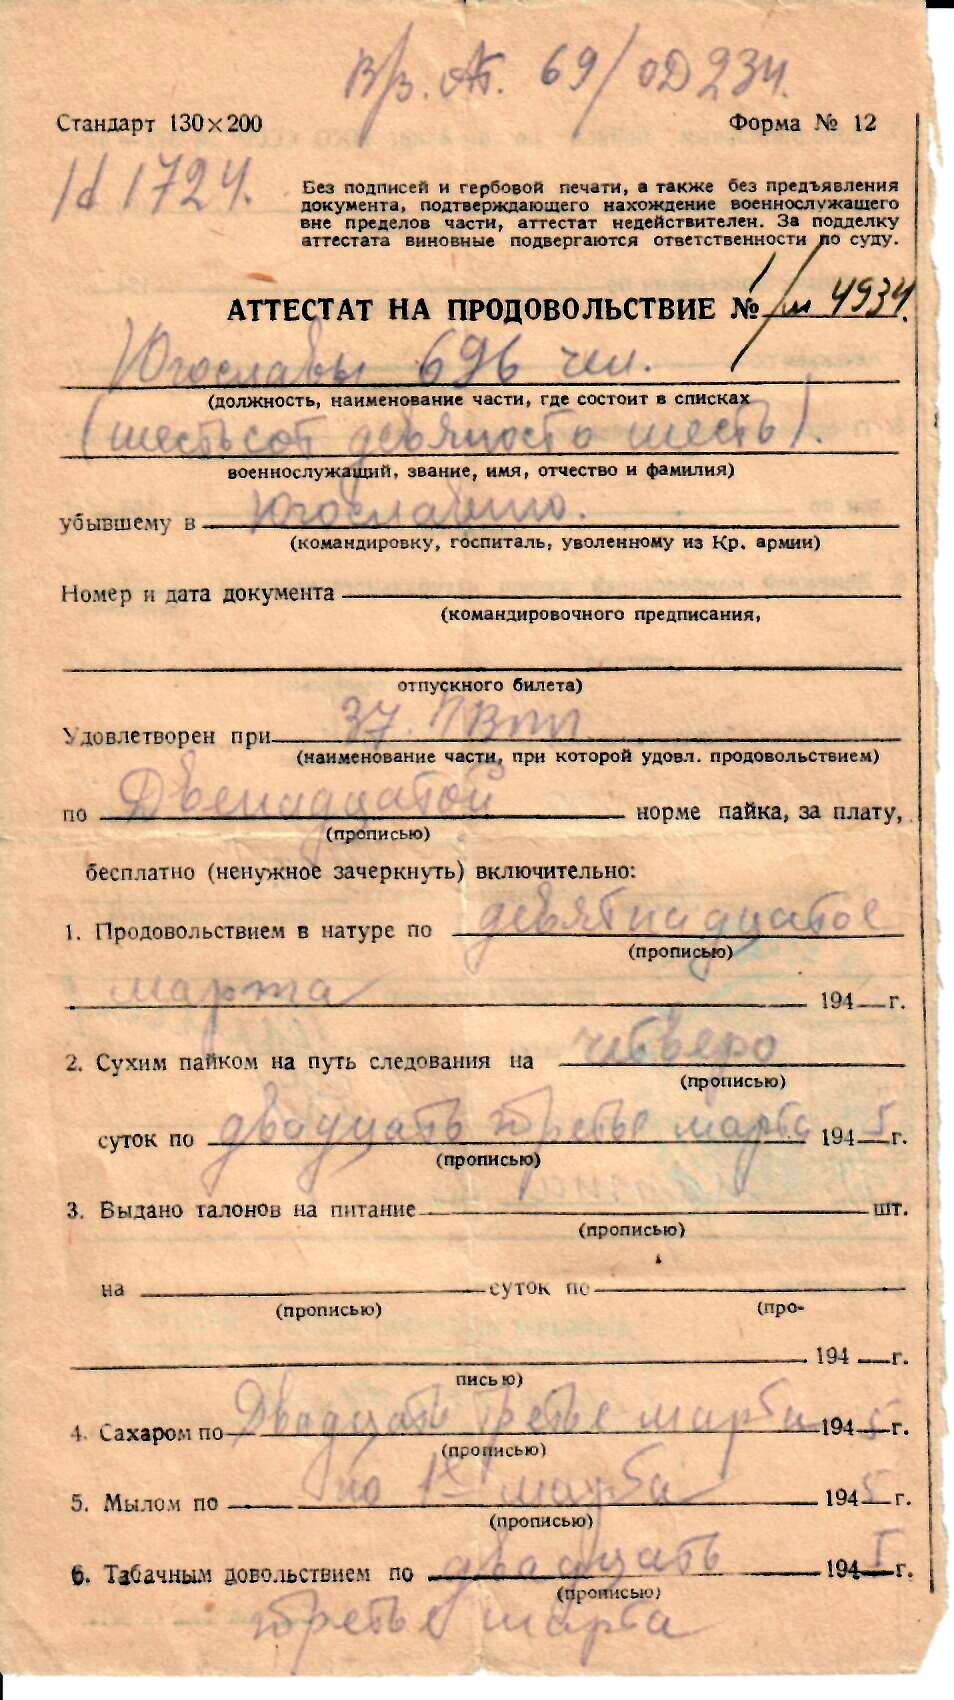 69/ОД234.
Стандарт 130×200 Форма № 12
1724.
Без подписей и гербовой печати, а также без предъявления
документа, подтверждающего нахождение военнослужащего
вне пределов части, аттестат недействителен. За подделку
аттестата виновные подвергаются ответственности по суду.
АТТЕСТАТ НА ПРОДОВОЛЬСТВИЕ № 4934.
Югославы 696 чел.
(должность, наименование части, где состоит в списках
(шестьсот девяносто шесть).
военнослужащий, звание, имя, отчество и фамилия)
убывшему в Югославию.
(командировку, госпиталь, уволенному из Кр. армии)
Номер и дата документа
(командировочного предписания,
отпускного билета)
Удовлетворен при 37.
(наименование части, при которой удовл. продовольствием)
по Двенадцатой норме пайка, за плату,
(прописью)
бесплатно (ненужное зачеркнуть) включительно:
1. Продовольствием в натуре по девятнадцатое
(прописью)
марта 194 г.
2. Сухим пайком на путь следования на четверо
(прописью)
суток по двадцать третье марта 1945 г.
(прописью)
3. Выдано талонов на питание шт.
(прописью)
на суток по
(прописью) (про-
194 г.
писью)
4. Сахаром по Двадцать третье марта 1945 г.
(прописью)
5. Мылом по по 1е марта 1945 г.
(прописью)
6. Табачным довольствием по двадцать 194 г.
(прописью)
третье марта